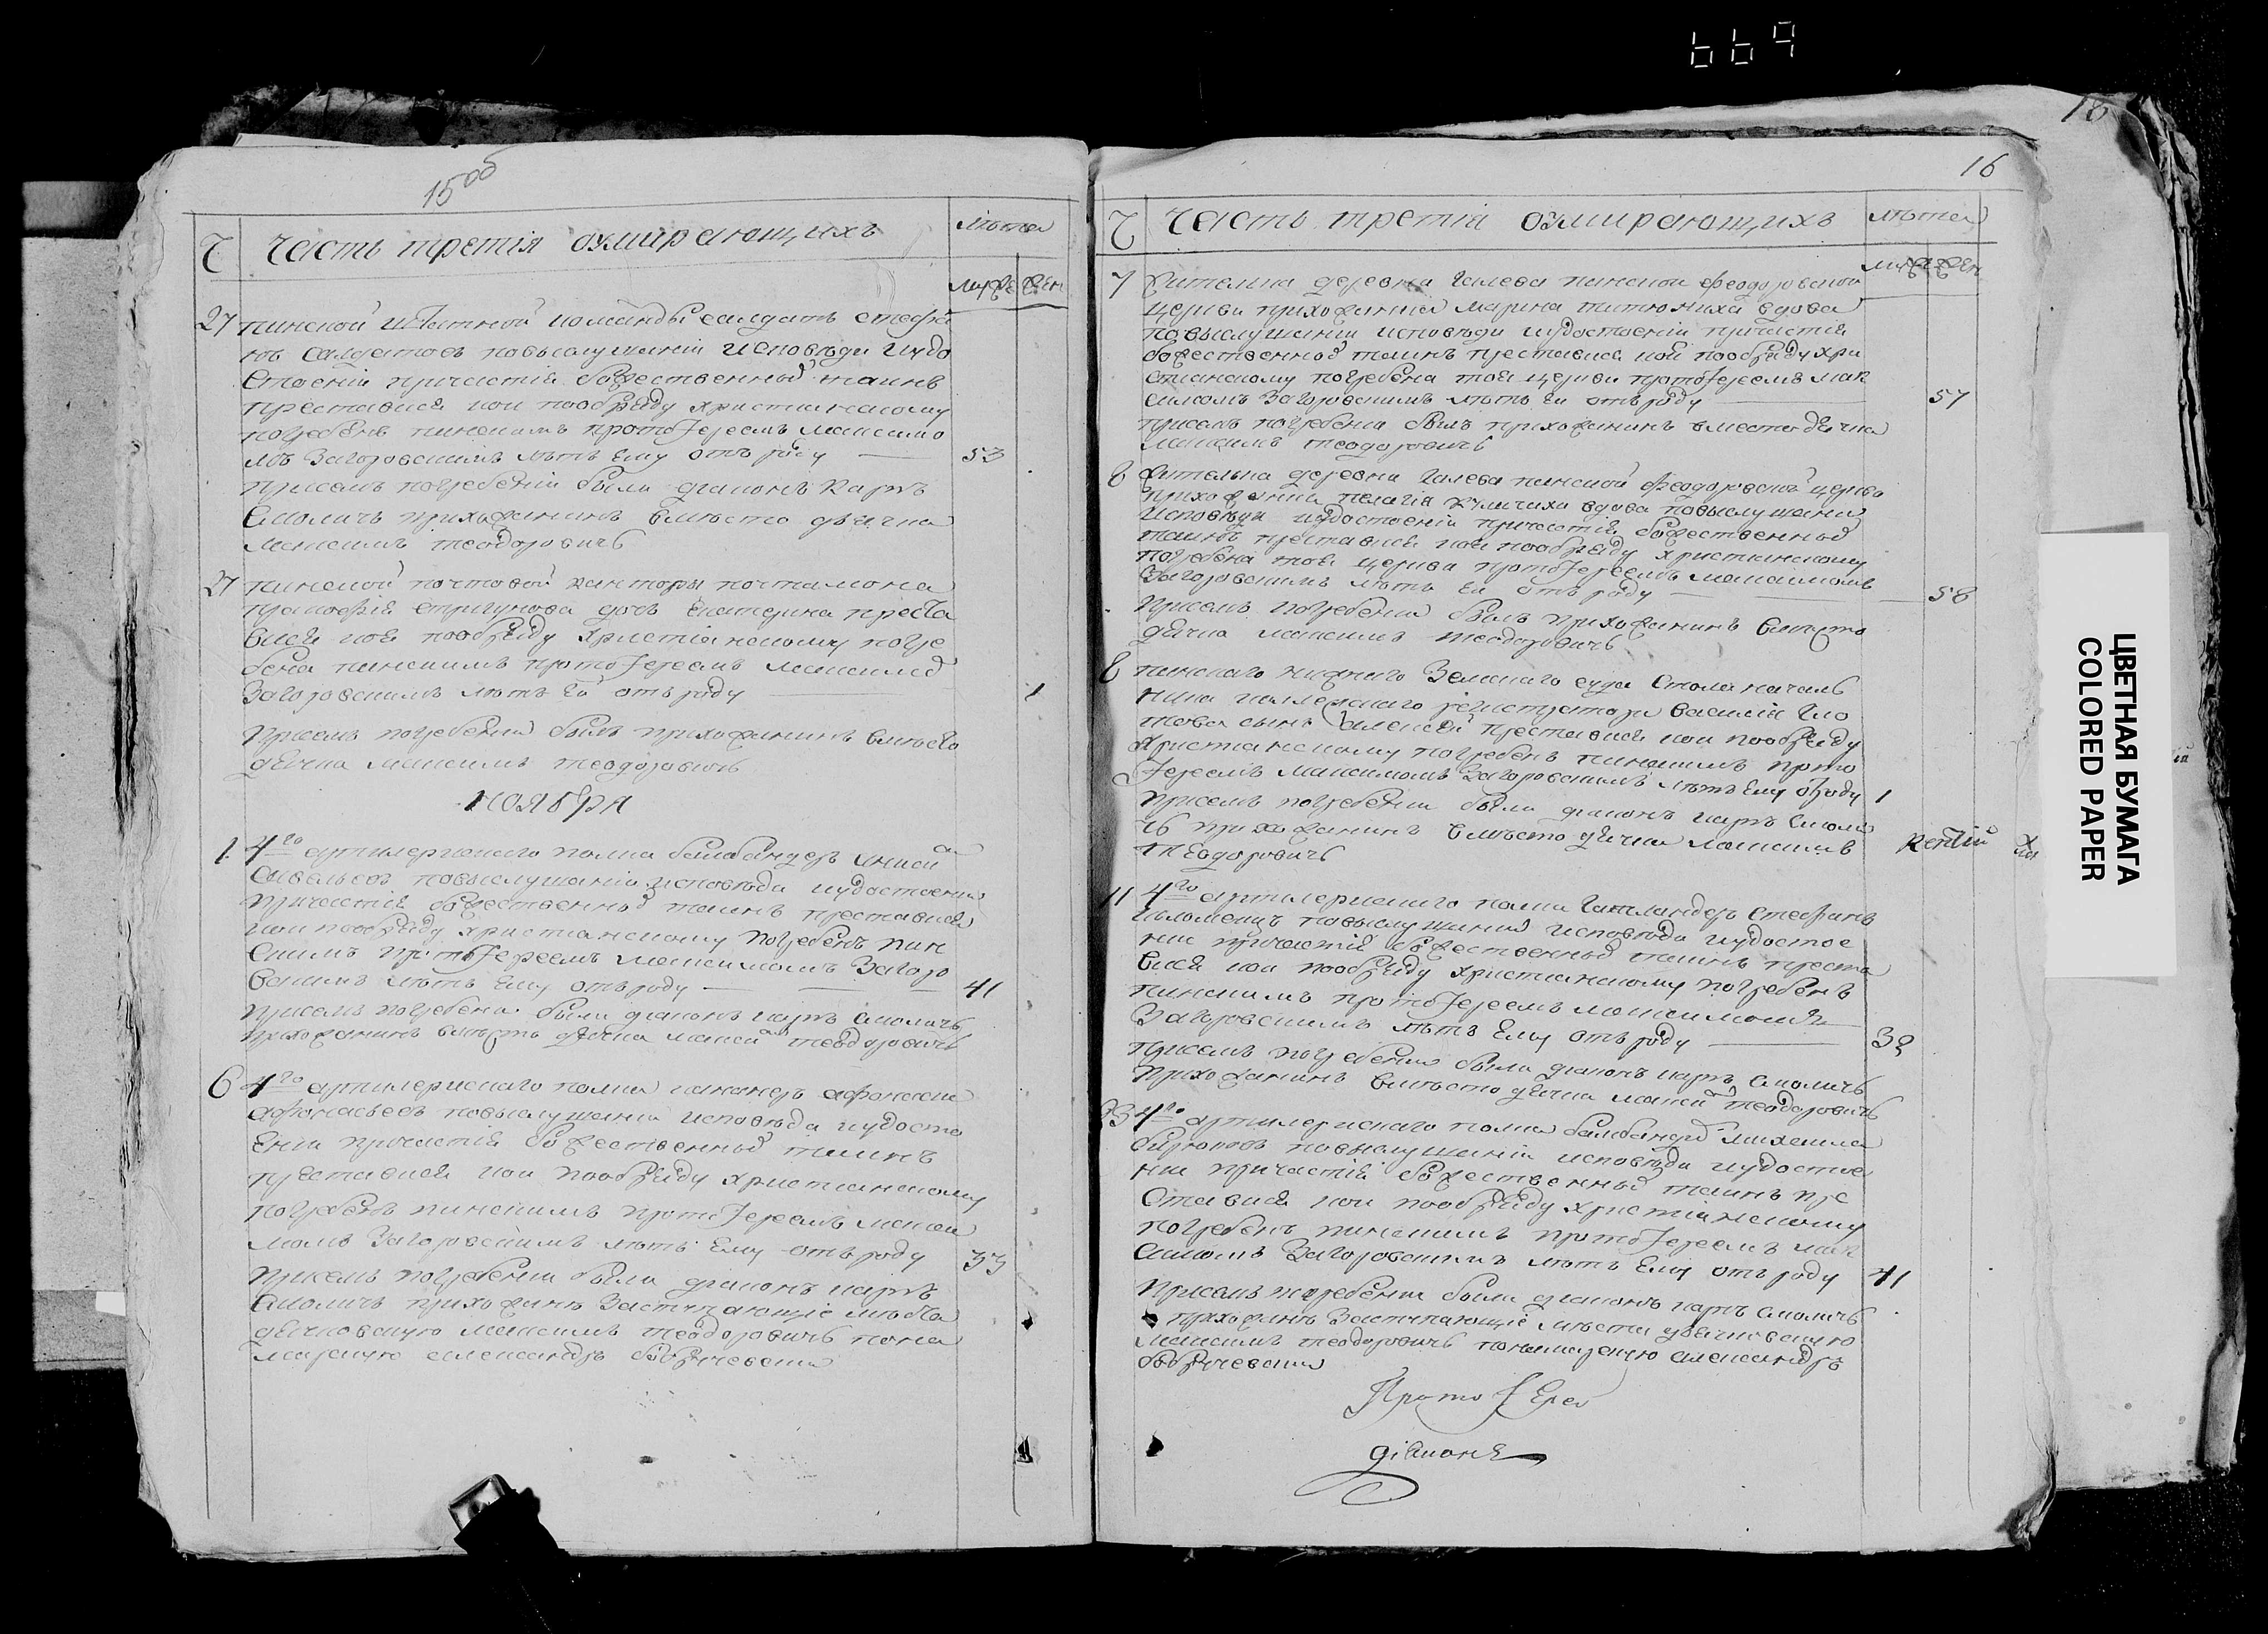 669
15об
Ч часть третiя оумирающихъ лѣта
муже жен
27 пинской штатной команды салдатъ стефа
нъ повыслушанiи исповѣди иудо
стоенiи причастiя божественных таинъ
преставися кои пообряду христианскому
погребенъ пинскимъ протоIереемъ максимо
мъ Загоровскимъ лѣтъ ему отъ роду 53
Присемъ погребенiи были дiаконъ Карпъ
Смоличъ прихожанинъ вмѣсто дьячка
максимъ теодоровичъ
27 пинской почтовой канторы почталiона
стригунова дочь екатерина преста
вися коя пообряду христiанскому погре
бена пинскимъ протоIереемъ максимо
Загоровскимъ лѣтъ ей отъ роду 1
Присемъ погребении былъ прихожанинъ вмѣсто
дьячка максимъ теодоровичъ
НОЯБРЯ
1 4го артилериского полка
повыслушанiи исповѣди иудостоении
причастiя божественных таинъ преставися
кои пообряду христианскому погребенъ пин
скимъ протоIереемъ максимомъ Загоро
вскимъ лѣтъ ему отъ роду 41
Присемъ погребении были дiаконъ карпъ смоличъ
прихожанинъ вмѣсто дьячка макси теодоровичъ
6 4го артилериского полка канонеръ афанасии
афонасьевъ повыслушании исповѣди иудосто
ении причастiя божественных таинъ
преставися кои пообряду христианскому
погребенъ пинскимъ протоIереемъ макси
момъ Загоровскимъ лѣтъ ему отъ роду 33
Присемъ погребении были дiаконъ карпъ
Смоличъ прихожанъ Заступающiе мѣста
дьячковскую максимъ теодоровичъ пона
марскую александръ
18
16
Ч Часть третiя оумирающихъ лѣта
муже жен
7 Жителька деревни Галева пинской феодоровской
церкви прихожанка марина титюниха вдова
повыслушании исповѣди иудостоенiи причастiя
божественных таинъ преставися коя пообряду хри
стианскому погребена тоя церкви протоIереемъ мак
симомъ Загоровскимъ лѣтъ ей отъ роду 57
Присемъ погребении былъ прихожанинъ вместо дьячка
максимъ теодоровичъ
8 жителька деревни Галева пинской феодоровской церкви
прихожанка пелагiя вдова повыслушании
исповѣди иудостоенiи причастiя божественных
таинъ преставися коя пообряду христианскому
погребена тоя церкви протоIереемъ максимомъ
Загоровскимъ лѣтъ ей отъ роду 58
Присемъ погребении былъ прихожанинъ вместо
дьячка максимъ теодоровичъ
8 пинскаго нижнего Земскаго суда столоначаль
ника колежскаго регистратора василiя
сынъ алексей преставися кои пообряду
христианскому погребенъ пинскимъ прото
Iереемъ максимомъ Загоровскимъ лѣтъ ему отроду 1
Присемъ погребении были дiаконъ карпъ смоли
чъ прихожанинъ вмѣсто дьячка максимъ
теодоровичъ
11 4го артилериского полка стефанъ
повыслушании исповѣди иудостое
нии причастiя божественных таинъ преста
вися кои пообряду христианскому погребенъ
пинскимъ протоIереемъ максимомъ
Загоровскимъ лѣтъ ему отъ роду 32
Присемъ погребении были дiаконъ карпъ смоличъ
прихожанинъ вмѣсто дьячка макси теодоровичъ
23 4го артилериского полка михаила
бирюковъ повыслушанiи исповѣди иудостое
нии причастiя божественных таинъ пре
ставися кои пообряду христианскому
погребенъ пинскимъ протоIереемъ мак
симомъ Загоровскимъ лѣтъ ему отъ роду 41
Присемъ погребении были дiаконъ карпъ смоличъ
прихожанъ Заступающiе мѣста дьячковскую
максимъ теодоровичъ понамарскую александръ
ПротоIерей
дiаконъ
ЦВЕТНАЯ БУМАГА
COLORED PAPER